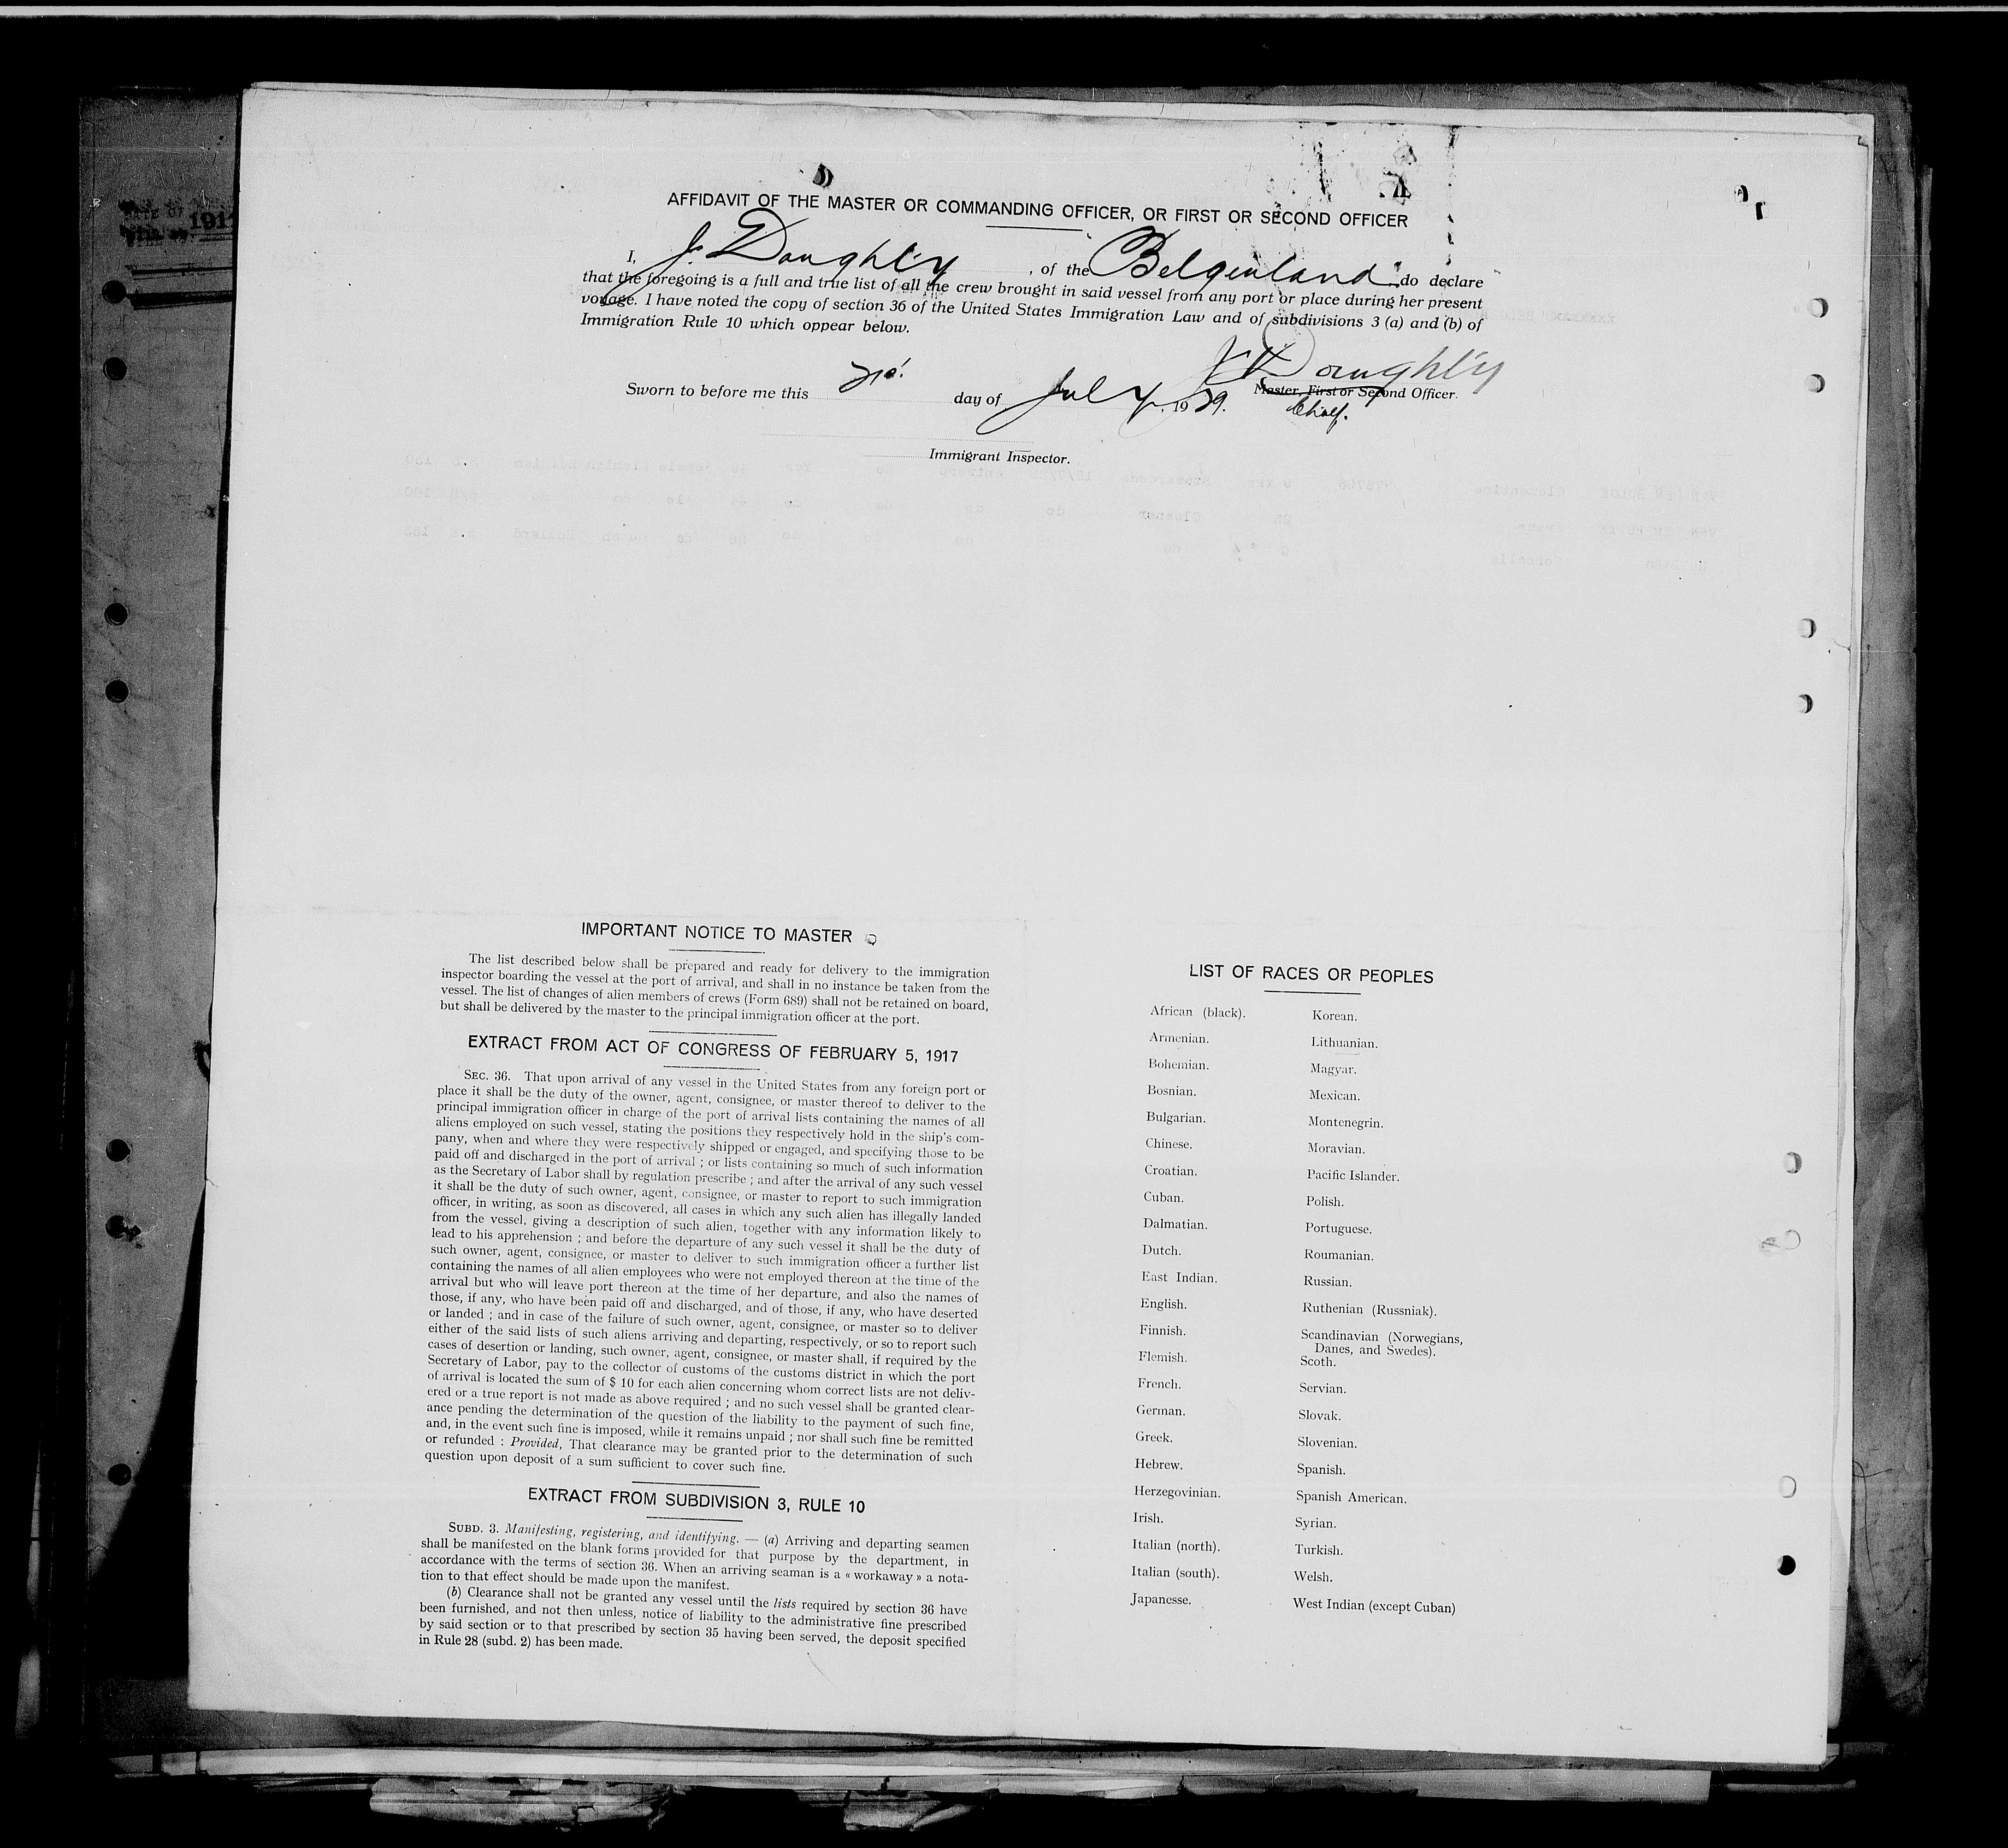 AFFIDAVIT OF THE MASTER OR COMMANDING OFFICER, OR FIRST OR SECOND OFFICER
I, J. Doughty, of the Belgenland do declare
that the foregoing is a full and true list of all the crew brought in said vessel from any port or place during her present
voyage. I have noted the copy of section 36 of the United States Immigration Law and of subdivisions 3 (a) and (b) of
Immigration Rule 10 which oppear below.
J Doughty
Sworn to before me this day of July, 1929. Master, First or Second Officer.
Chief.
Immigrant Inspector.
IMPORTANT NOTICE TO MASTER
The list described below shall be prepared and ready for delivery to the immigration
inspector boarding the vessel at the port of arrival, and shall in no instance be taken from the
vessel. The list of changes of alien members of crews (Form 689) shall not be retained on board,
but shall be delivered by the master to the principal immigration officer at the port.
EXTRACT FROM ACT OF CONGRESS OF FEBRUARY 5, 1917
SEC. 36. That upon arrival of any vessel in the United States from any foreign port or
place it shall be the duty of the owner, agent, consignee, or master thereof to deliver to the
principal immigration officer in charge of the port of arrival lists containing the names of all
aliens employed on such vessel, stating the positions they respectively hold in the ship's com-
pany, when and where they were respectively shipped or engaged, and specifying those to be
paid off and discharged in the port of arrival ; or lists containing so much of such information
as the Secretary of Labor shall by regulation prescribe ; and after the arrival of any such vessel
it shall be the duty of such owner, agent, consignee, or master to report to such immigration
officer, in writing, as soon as discovered, all cases in which any such alien has illegally landed
from the vessel, giving a description of such alien, together with any information likely to
lead to his apprehension ; and before the departure of any such vessel it shall be the duty of
such owner, agent, consignee, or master to deliver to such immigration officer a further list
containing the names of all alien employees who were not employed thereon at the time of the
arrival but who will leave port thereon at the time of her departure, and also the names of
those, if any, who have been paid off and discharged, and of those, if any, who have deserted
or landed ; and in case of the failure of such owner, agent, consignee, or master so to deliver
either of the said lists of such aliens arriving and departing, respectively, or so to report such
cases of desertion or landing, such owner, agent, consignee, or master shall, if required by the
Secretary of Labor, pay to the collector of customs of the customs district in which the port
of arrival is located the sum of $ 10 for each alien concerning whom correct lists are not deliv-
ered or a true report is not made as above required ; and no such vessel shall be granted clear-
ance pending the determination of the question of the liability to the payment of such fine,
and, in the event such fine is imposed, while it remains unpaid ; nor shall such fine be remitted
or refunded : Provided, That clearance may be granted prior to the determination of such
question upon deposit of a sum sufficient to cover such fine.
EXTRACT FROM SUBDIVISION 3, RULE 10
SUBD. 3. Manifesting, registering, and identifying. — (a) Arriving and departing seamen
shall be manifested on the blank forms provided for that purpose by the department, in
accordance with the terms of section 36. When an arriving seaman is a « workaway » a nota-
tion to that effect should be made upon the manifest.
(b) Clearance shall not be granted any vessel until the lists required by section 36 have
been furnished, and not then unless, notice of liability to the administrative fine prescribed
by said section or to that prescribed by section 35 having been served, the deposit specified
in Rule 28 (subd. 2) has been made.
LIST OF RACES OR PEOPLES
African (black).
Armenian.
Bohemian.
Bosnian.
Bulgarian.
Chinese.
Croatian.
Cuban.
Dalmatian.
Dutch.
East Indian.
English.
Finnish.
Flemish.
French.
German.
Greek.
Hebrew.
Herzegovinian.
Irish.
Italian (north).
Italian (south).
Japanesse.
Korean.
Lithuanian.
Magyar.
Mexican.
Montenegrin.
Moravian.
Pacific Islander.
Polish.
Portuguese.
Roumanian.
Russian.
Ruthenian (Russniak).
Scandinavian (Norwegians,
Danes, and Swedes).
Scoth.
Servian.
Slovak.
Slovenian.
Spanish.
Spanish American.
Syrian.
Turkish.
Welsh.
West Indian (except Cuban)